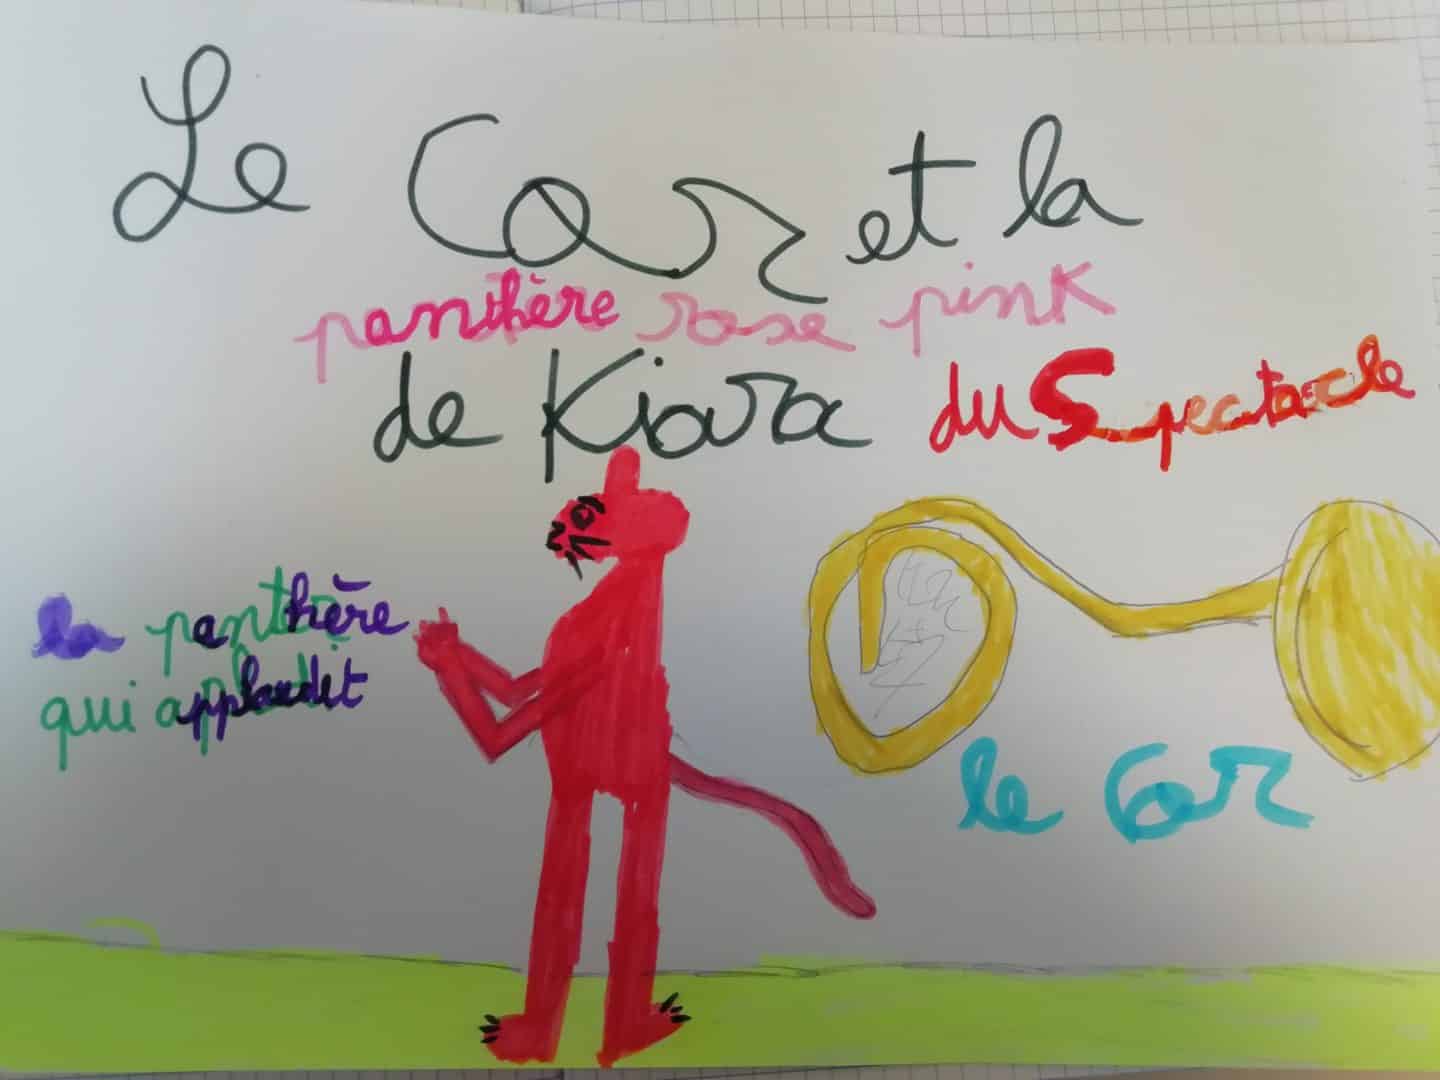 Le Cor et la
panthère rose pink
de Kiara du Spectacle
la panthère
qui applaudit
le Cor